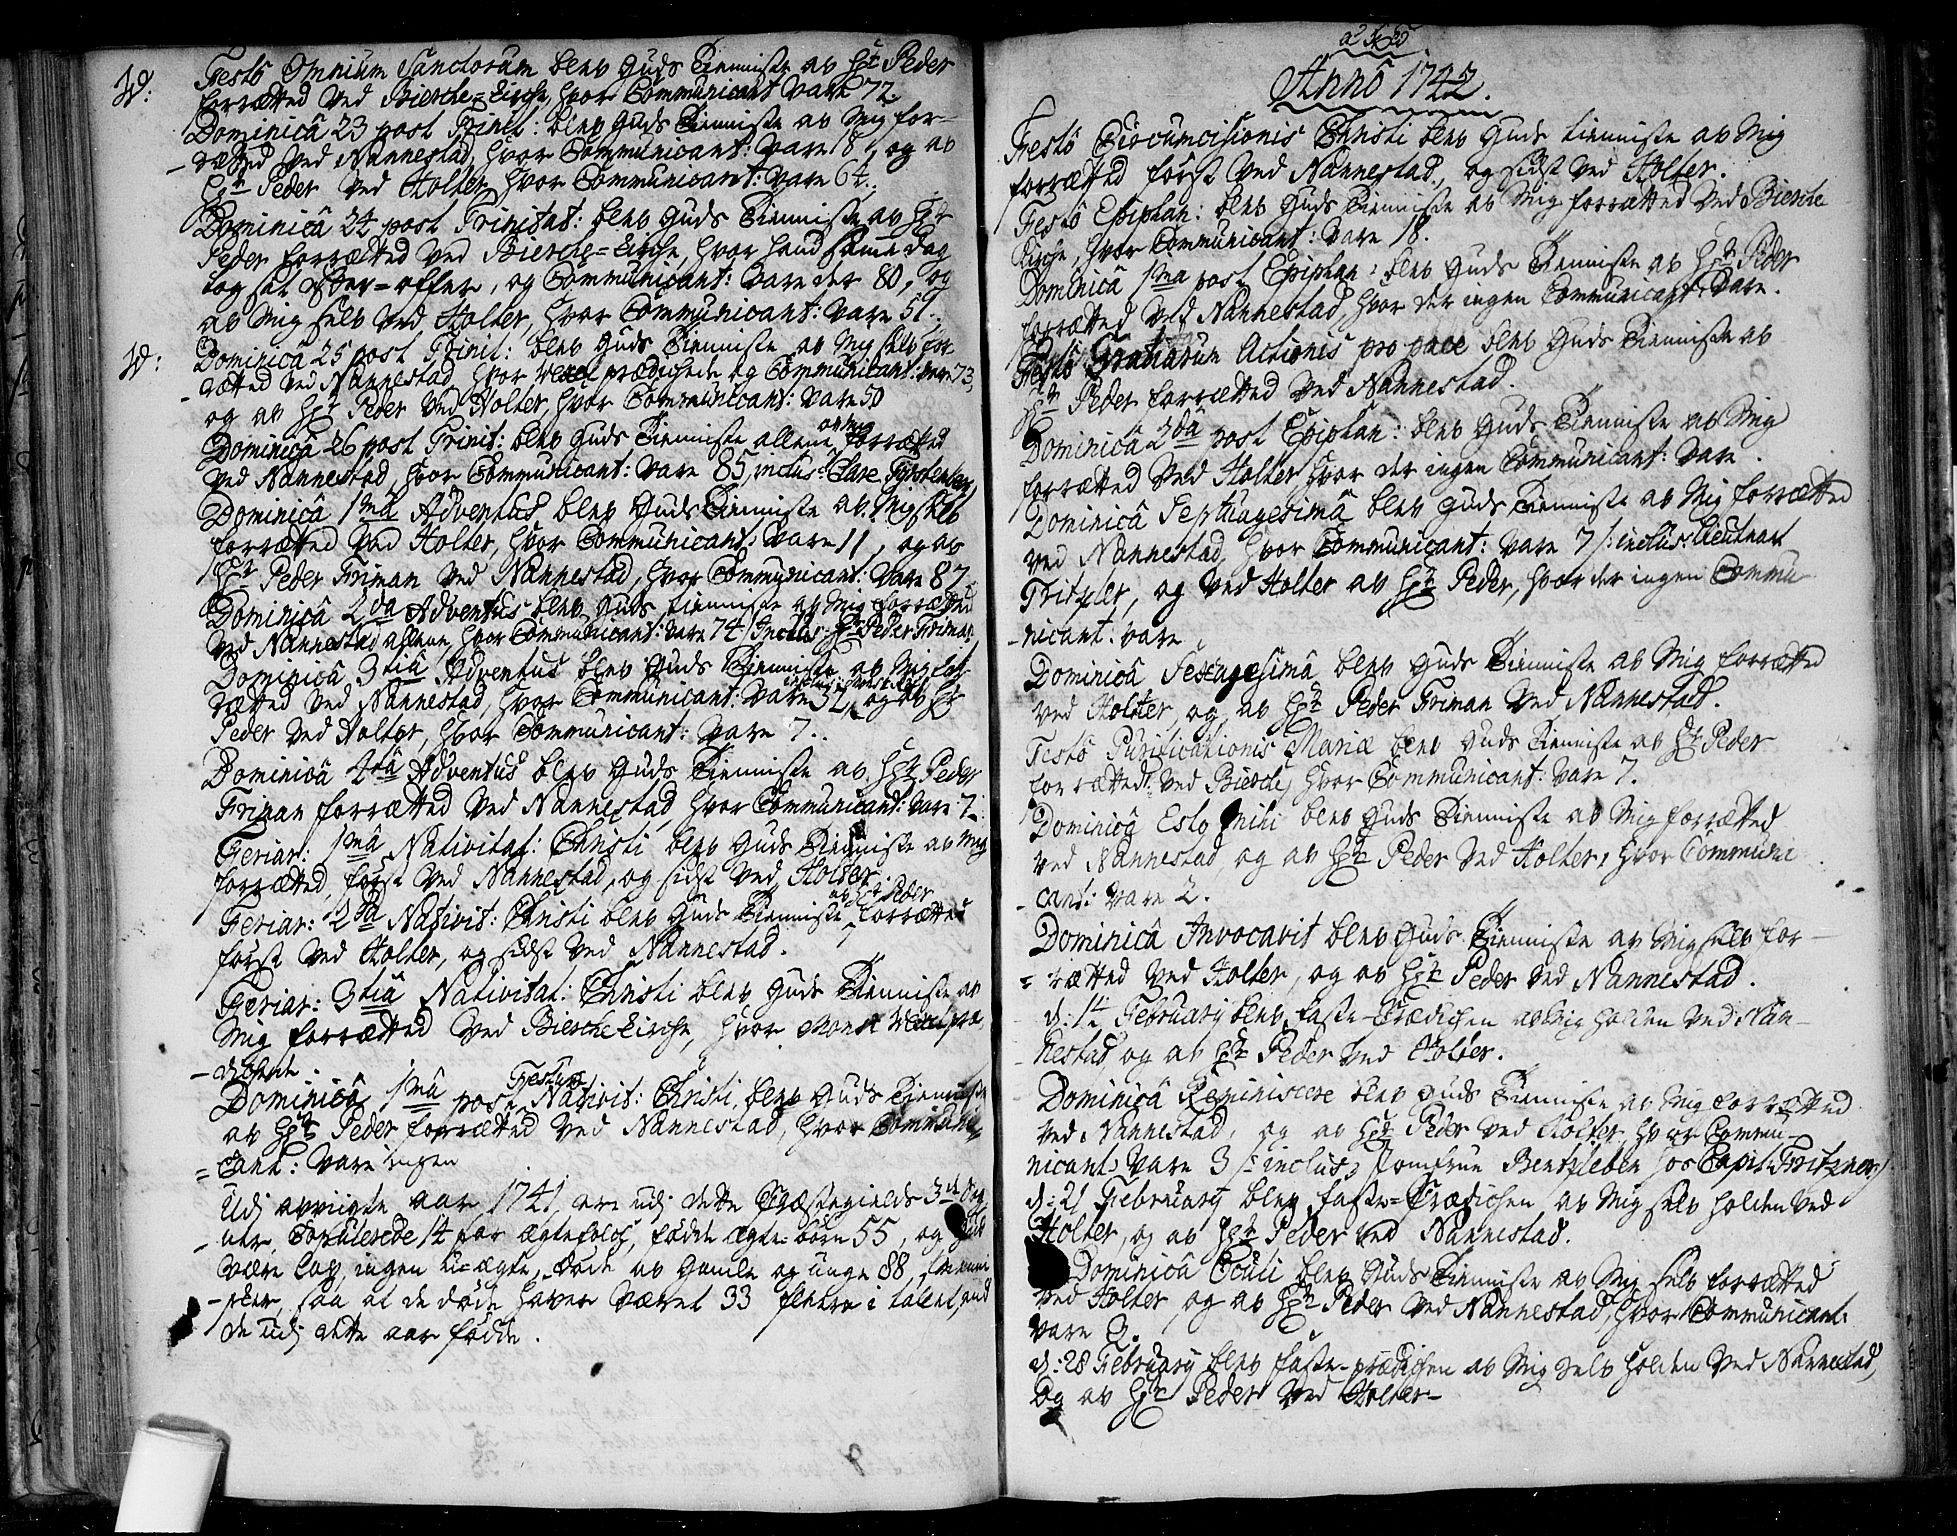 W:
Festô Omnium Sanctorum blev Guds Tienniste av Hr: Peder
forrætted ved Bierche-Kirche, hvor Communicant vare 72.
Dominicâ 23 post Trinit: blev Guds Tienniste av Mig for-
-rætted ved Nannestad, hvor Communicant: vare 18, og av
Hr: Peder ved Holter, hvor Communicant: vare 64.
Dominicâ 24 post Trinitat: blev Guds Tienniste av Hr:
Peder forrætted ved Bierche-Kirche, hvor hand samme dag
tog sit offer, og Communicant: vare der 80, og
av Mig selv ved Holter, hvor Communicant: vare 51.
W:
Dominicâ 25 post Trinit: blev Guds Tienniste av Mig selv for-
-rætted ved Nannestad hvor prædichede og Communicant: vare 73,
og av Hr: Peder ved Holter, hvor Communicant: vare 50
Dominicâ 26 post Trinit: blev Guds Tienniste allene av Mig forrætted
ved Nannestad, hvor Communicant: vare 85, inclus:
Dominicâ 1mâ Adventus blev Guds Tienniste av Mig selv
forrætted ved Holter, hvor Communicant: vare 11, og av
Hr: Peder Friman ved Nannestad, hvor Communicant: vare 87.
Dominicâ 2dâ Adventus blev Guds tienniste av Mig forrætted
ved Nannestad allene hvor Communicant: vare 74 /:Inclus: Hr: Peder Friman
Dominicâ 3tiâ Adventus blev Guds Tienniste av Mig for-
rætted ved Nannestad, hvor Communicant: vare 32, og av Hr:
Peder ved Holter, hvor Communicant: vare 7.
Dominicâ 4tâ Adventus blev Guds Tienniste av Hr: Peder
Friman forrætted ved Nannestad, hvor Communicant: vare 7.
Feriar: 1mâ Nativitat: Christi blev Guds Tienniste av mig
forrætted, først ved Nannestad, og sidst ved Holter.
Feriar: 2dâ Nativit: Christi blev Guds Tienniste av Hr: Peder forrætted
først ved Holter, og sidst ved Nannestad.
Feriar: 3tiâ Nativitat: Christi blev Guds Tienniste av
Mig forrætted ved Bierche Kirche, hvor præ-
-dichede.
Dominicâ 1mâ post Festum Nativit: Christi, blev Guds Tienniste
av Hr: Peder forrætted ved Nannestad, hvor Communi-
=cant: vare ingen
Udj avvigte aar 1741 ere udj dette Præstegields 3de Sog-
-ner, Copulerede 14 par ægtefolch, fødde ægte børn 55, og
ingen u-ægte, døde av gamle og unge 88,
saa at de døde haver været 33 fleere i talet, end
de udj dette aar fødde.
Annô 1742.
Festô Circumcisionis Christi blev Guds tienniste av Mig
forrætted først ved Nannestad, og sidst ved Holter.
Festô Epiphan: blev Guds Tienniste av Mig forrætted ved Bierche
Kirche, hvor Communicant: vare 18.
Dominicâ 1mâ post Epiphan: blev Guds Tienniste av Hr: Peder
forrætted ved Nannestad, hvor der ingen Communicant: vare.
Festô Gratiarum Actionis pro pace blev Guds Tienniste av
Hr: Peder forrætted ved Nannestad.
Dominicâ 2dâ post Epiphan: blev Guds Tienniste av Mig
forrætted ved Holter hvor der ingen Communicant: vare.
Dominicâ Septuagesimâ blev Guds Tienniste av Mig forrætted
ved Nannestad, hvor Communicant: vare 7 /:inclus: Lieutnant
Fritzner, og ved Holter av Hr: Peder, hvor der ingen Commu
-nicant: vare.
Dominicâ Sexagesimâ blev Guds Tienniste av Mig forrætted
ved Holter, og av Hr: Peder Friman ved Nannestad.
Festô Purificationis Mariæ blev Guds Tienniste av Hr: Peder
forrætted ved Bierche, hvor Communicant: vare 7.
Dominicâ Esto mihi blev Guds Tienniste av Mig forrætted
ved Nannestad og av Hr: Peder ved Holter, hvor Communi
-cant: vare 2.
Dominicâ Invocavit blev Guds Tienniste av Mig selv for-
=rætted ved Holter, og av Hr: Peder ved Nannestad.
d: 14 February blev faste-Prædichen av Mig holden ved Nan-
-nestad og av Hr: Peder ved Holter.
Dominicâ Reminiscere blev Guds Tienniste av Mig forrætted
ved Nannestad, og av Hr: Peder ved Holter, hvor Commu-
nicant: vare 3 /:inclus: Jomfrue Bentzleben hos Capit: Fritzner:/
d: 21 February blev faste-Prædichen av Mig selv holden ved
Holter, og av Hr: Peder ved Nannestad.
Dominicâ Oculi blev Guds Tienniste av Mig selv forrætted
ved Holter, og av Hr: Peder ved Nannestad, hvor Communicant:
vare 9.
d: 28 February blev faste-prædichen av Mig selv holden ved Nannestad,
Og av Hr: Peder ved Holter-